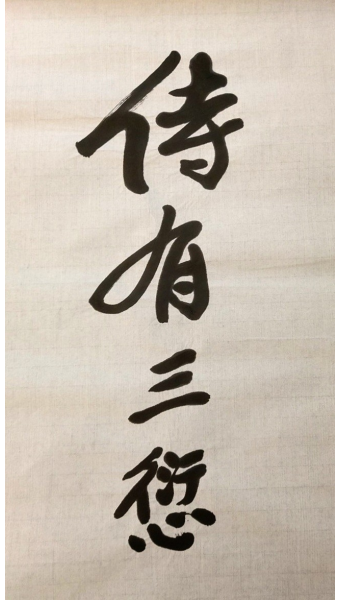 侍有三愆